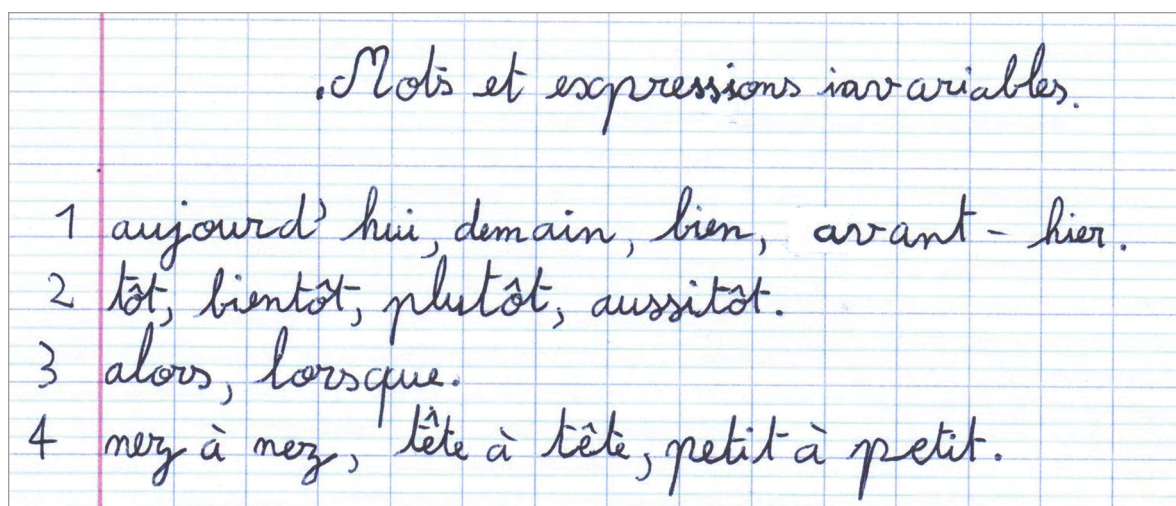 Mots et expressions invariables.
1 aujourd'hui, demain, bien, avant-hier.
2 tôt, bientôt, plutôt, aussitôt.
3 alors, lorsque.
4 nez à nez, tête à tête, petit à petit.